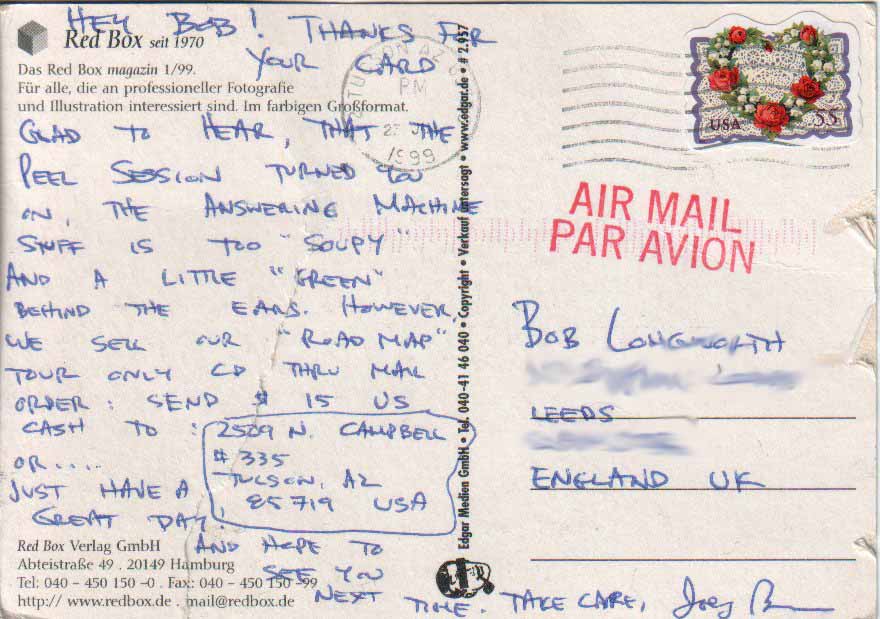 HEY BOB! THANKS FOR
YOUR CARD
Red Box seit 1970
Das Red Box magazin 1/99.
Für alle, die an professioneller Fotografie
und Illustration interessiert sind. Im farbigen Großformat.
GLAD TO HEAR, THAT THE
PEEL SESSION TURNED YOU
ON, THE ANSWERING MACHINE
STUFF IS TOO "SOUPY"
AND A LITTLE "GREEN"
BEHIND THE EARS. HOWEVER,
WE SELL OUR "ROAD MAP"
TOUR ONLY CD THRU MAIL
ORDER: SEND $ 15 US
CASH TO: 2509 N. CAMPBELL
# 335
TUCSON, AZ
85719 USA
OR....
JUST HAVE A
GREAT DAY!
AND HOPE TO
SEE YOU
NEXT TIME. TAKE CARE, Joey
Red Box Verlag GmbH
Abteistraße 49 . 20149 Hamburg
Tel: 040 – 450 150 –0 . Fax: 040 – 450 150 –99
http:// www.redbox.de . mail@redbox.de
Edgar Medien GmbH • Tel. 040-41 46 040 • Copyright • Verkauf untersagt • www.edgar.de • # 2.957
TUCSON AZ
PM
1999
USA 55
AIR MAIL
PAR AVION
BOB LONGWORTH
LEEDS
ENGLAND UK